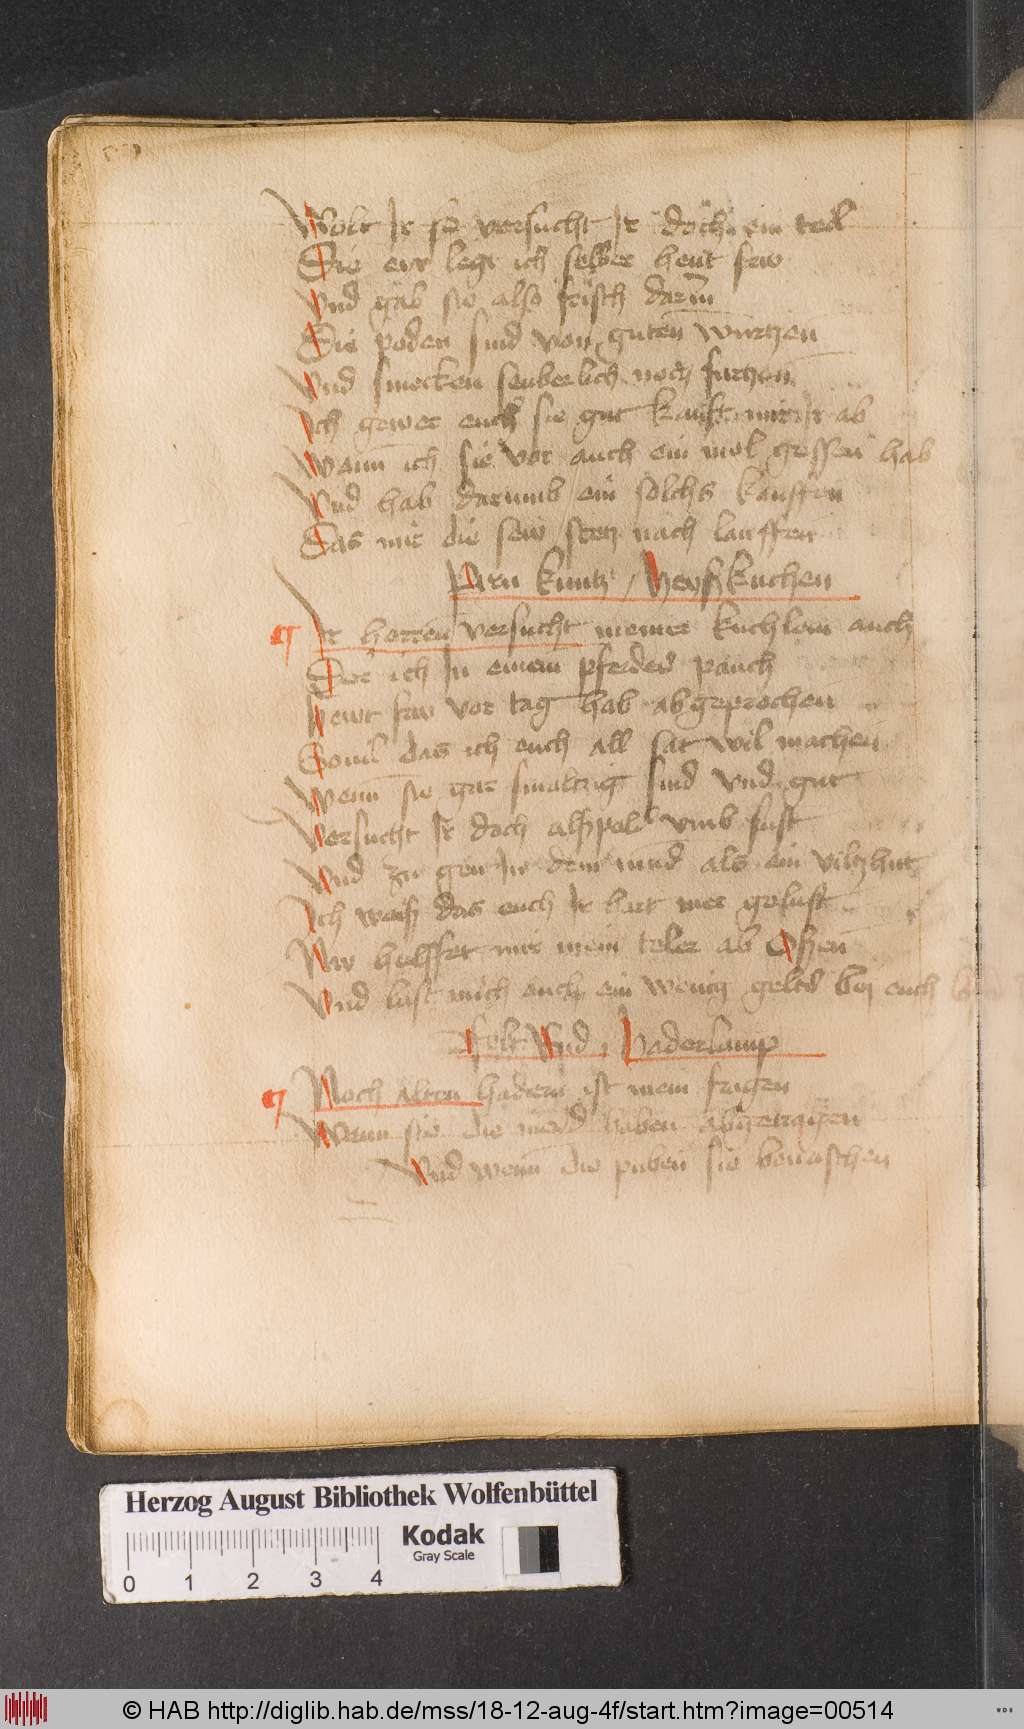 Wolt Ir so versucht Ir doch ein teil
Die eyr legt ich selber heut frw
Vnd gab sie also frisch darin
Die poden sind von guten wurtzen
Vnd smecken seuberlich noch furtzen
Ich gewer euch sie gut kauft mirs Ir ab
Wenn ich sie vor auch ein mol gessen hab
Vnd hab darumb ein solchs kauffen
Das mir die sew stetz nach lauffen
kuntz / Heyskuchen
Ir herren versucht meiner kuchlein auch
Der ich In einem pferdes pauch
Hewt frw vor tag hab abgeprochen
Souil das ich euch all sat wil machen
Wenn sie gar smaltzig sind vnd gut
Versucht Ir doch vmb sust
Vnd zu gen In dem mund als ein viltzhut
Ich waiß das euch Ir hart mer gelust
Nw helffet mir mein teler ab
Vnd lust mich auch ein wenig gelts bej euch
Vnd Haderlump
Noch alten hadern ist mein fragen
Wenn sie die meid haben abgetragen
Vnd wenn die puben sie
Herzog August Bibliothek Wolfenbüttel
Kodak
Gray Scale
0 1 2 3 4
© HAB http://diglib.hab.de/mss/18-12-aug-4f/start.htm?image=00514